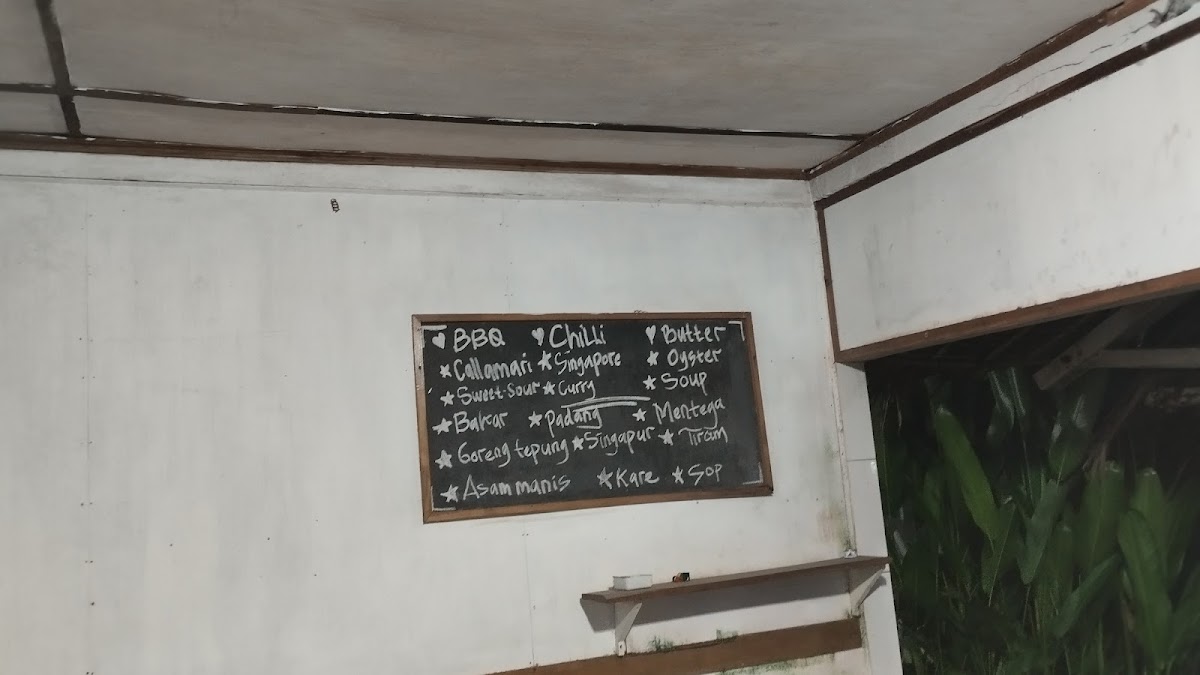 BBQ Chilli Butter
Callamari Singapore Oyster
Sweet-Sour Curry Soup
Bakar Padang Mentega
Goreng tepung Singapur Tiram
Asam manis Kare Sop